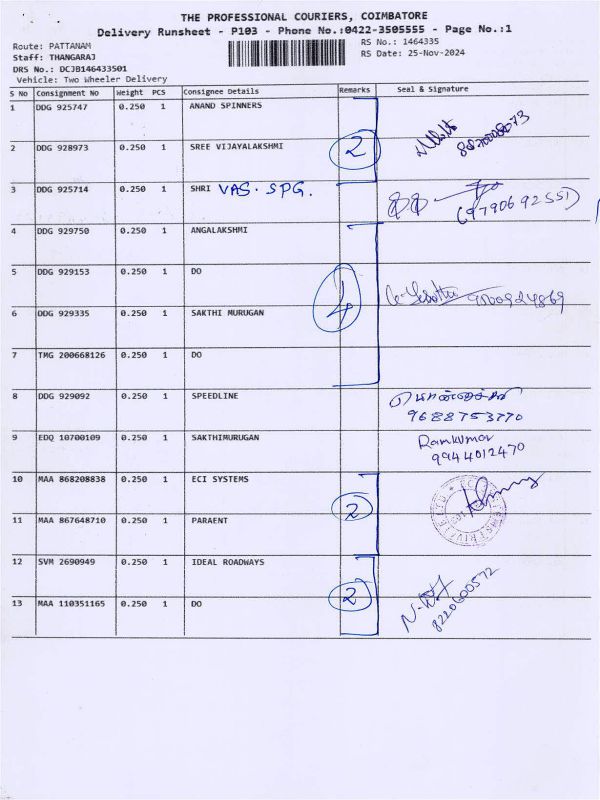 THE PROFESSIONAL COURIERS, COIMBATORE
Delivery Runsheet - P103 - Phone No.:0422-3505555 - Page No.:1
Route: PATTANAM
RS No.: 1464335
Staff: THANGARAJ
RS Date: 25-Nov-2024
DRS No.: DCJB146433501
Vehicle: Two Wheeler Delivery
S No Consignment No Weight PCS Consignee Details Remarks Seal & Signature
1 DDG 925747 0.250 1 ANAND SPINNERS
2 DDG 928973 0.250 1 SREE VIJAYALAKSHMI 2
3 DDG 925714 0.250 1 SHRI VAS. SPG.
(9790692551)
4 DDG 929750 0.250 1 ANGALAKSHMI
5 DDG 929153 0.250 1 DO
4
6 DDG 929335 0.250 1 SAKTHI MURUGAN
7 TMG 200668126 0.250 1 DO
8 DDG 929092 0.250 1 SPEEDLINE
9688753770
9 EDQ 10700109 0.250 1 SAKTHIMURUGAN Ramkumar
9944012470
10 MAA 868208838 0.250 1 ECI SYSTEMS
2
11 MAA 867648710 0.250 1 PARAENT
12 SVM 2690949 0.250 1 IDEAL ROADWAYS
2
8220600572
13 MAA 110351165 0.250 1 DO